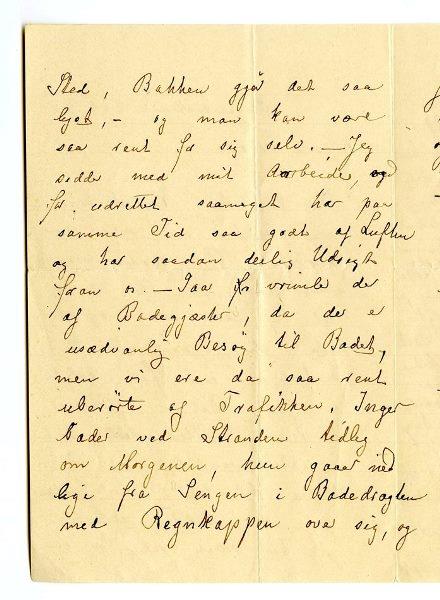 Sted, Bakken gjør det saa
lyst, – og man kan være
saa rent for sig selv. – Jeg
sidder med mit Arbeide, og
for udrettet saameget har paa
samme Tid saa godt af Luften
og har saadan deilig Udsigt
foran os. – Saa vrimle der
af Badegjæster, da der er
usædvanlig Besøg til Badet,
men vi ere da saa rent
uberörte af Trafikken. Inger
bader ved Stranden tidlig
om Morgenen, hun gaaer ned
lige fra Sengen i Badedragten
med Regnkappen over sig, og